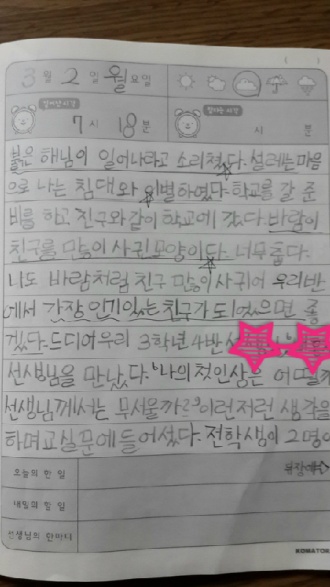 3월 2일 월요일
일어난 시각
잠자는 시각
7시 18분
시 분
붉은 해님이 일어나라고 소리쳤다. 설레는 마음
으로 나는 침대와 이별하였다. 학교를 갈 준
비를 하고 친구와 같이 학교에 갔다. 바람이
친구를 많이 사귄 모양이다. 너무 좋다.
나도 바람처럼 친구 많이 사귀어 우리반
에서 가장 인기있는 친구가 되었으면 좋
겠다. 드디어 우리 3학년 4반
선생님을 만났다. '나의 첫인상은 어떨까
선생님께서는 무서울까?' 이런저런 생각을
하며 교실문에 들어섰다. 전학생이 2명이
오늘의 한 일
내일의 할 일
선생님의 한마디
뒷장에